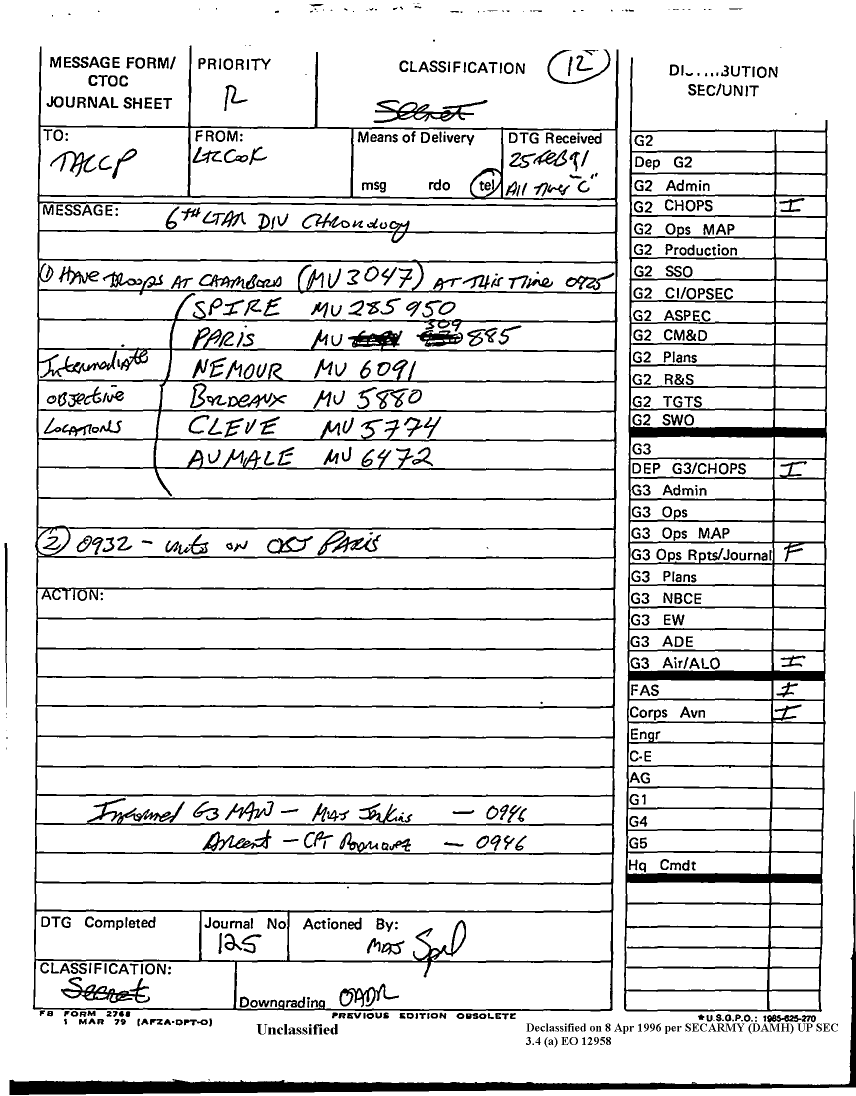 MESSAGE FORM/
CTOC
JOURNAL SHEET
PRIORITY
R
CLASSIFICATION
12
Secret
TO:
TACCP
FROM:
LTC Cook
Means of Delivery
msg rdo tel
DTG Received
25 FEB 91
All Times "C"
MESSAGE:
6TH LTAR DIV Chronology
(1) HAVE TROOPS AT CHAMBORD (MU3047) AT THIS TIME 0925
SPIRE MU 285950
PARIS MU 309 885
NEMOUR MU 6091
BORDEAUX MU 5880
CLEVE MU 5774
AUMALE MU 6472
Intermediate
OBJective
LOCATIONS
(2) 0932 - units on OBJ PARIS
ACTION:
Informed G3 MAIN - MAJ Jenkins - 0946
Arcent - CPT Rodriquez - 0946
DTG Completed
Journal No
125
Actioned By:
MAJ
CLASSIFICATION:
Secret
Downgrading OADR
FB FORM 2768
1 MAR 79 (AFZA-DPT-O)
PREVIOUS EDITION OBSOLETE
Unclassified
DI BUTION
SEC/UNIT
G2
Dep G2
G2 Admin
G2 CHOPS I
G2 Ops MAP
G2 Production
G2 SSO
G2 CI/OPSEC
G2 ASPEC
G2 CM&D
G2 Plans
G2 R&S
G2 TGTS
G2 SWO
G3
DEP G3/CHOPS I
G3 Admin
G3 Ops
G3 Ops MAP
G3 Ops Rpts/Journal F
G3 Plans
G3 NBCE
G3 EW
G3 ADE
G3 Air/ALO I
FAS I
Corps Avn I
Engr
C-E
AG
G1
G4
G5
Hq Cmdt
*U.S.G.P.O.: 1985-625-270
Declassified on 8 Apr 1996 per SECARMY (DAMH) UP SEC
3.4 (a) EO 12958